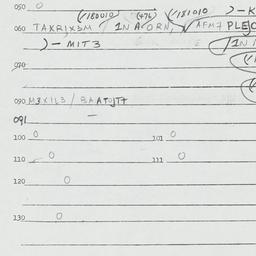 050 0
(/180010 (476) (/181010 )-K
060 TAXRIX3M / IN A ORN, \ AFM7 PLEJO
)-MIT3 /IN
070
090 M3X1L3 / BAATUJT7
091 —
100 0 101 0
110 0 111 0
120 0
130 0